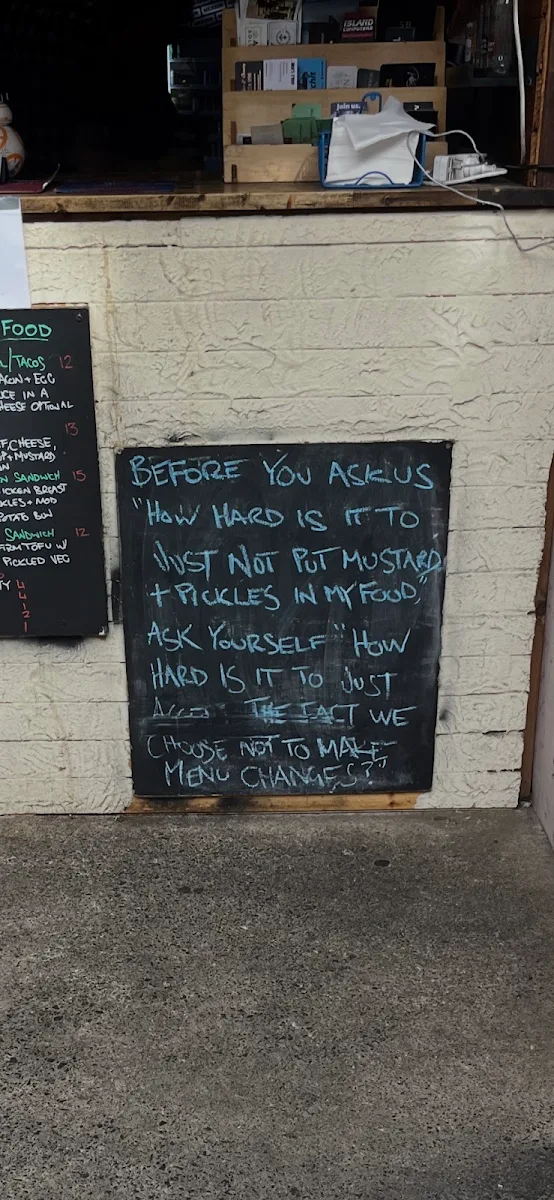 ISLAND
Join us
FOOD
/TACOS 12
BACON + EGG
CHEESE OPTIONAL
13
CHEESE,
+ MUSTARD
SANDWICH 15
CHICKEN BREAST
POTATO BUN
SANDWICH 12
FIRM TOFU W/
PICKLED VEG
4
4
2
1
BEFORE YOU ASK US
"HOW HARD IS IT TO
JUST NOT PUT MUSTARD
+ PICKLES IN MY FOOD,"
ASK YOURSELF "HOW
HARD IS IT TO JUST
THE FACT WE
CHOOSE NOT TO MAKE
MENU CHANGES?"